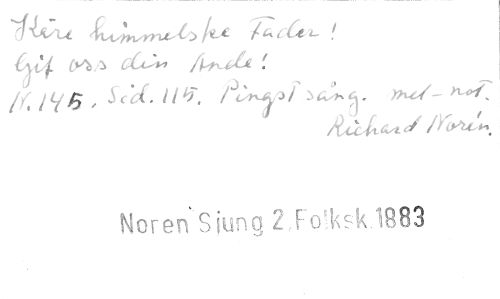 Käre himmelske Fader!
Gif oss din Ande!
N.145. Sid. 115. Pingst sång. mel-not.
Richard Norén.
Noren Sjung 2. Folksk. 1883